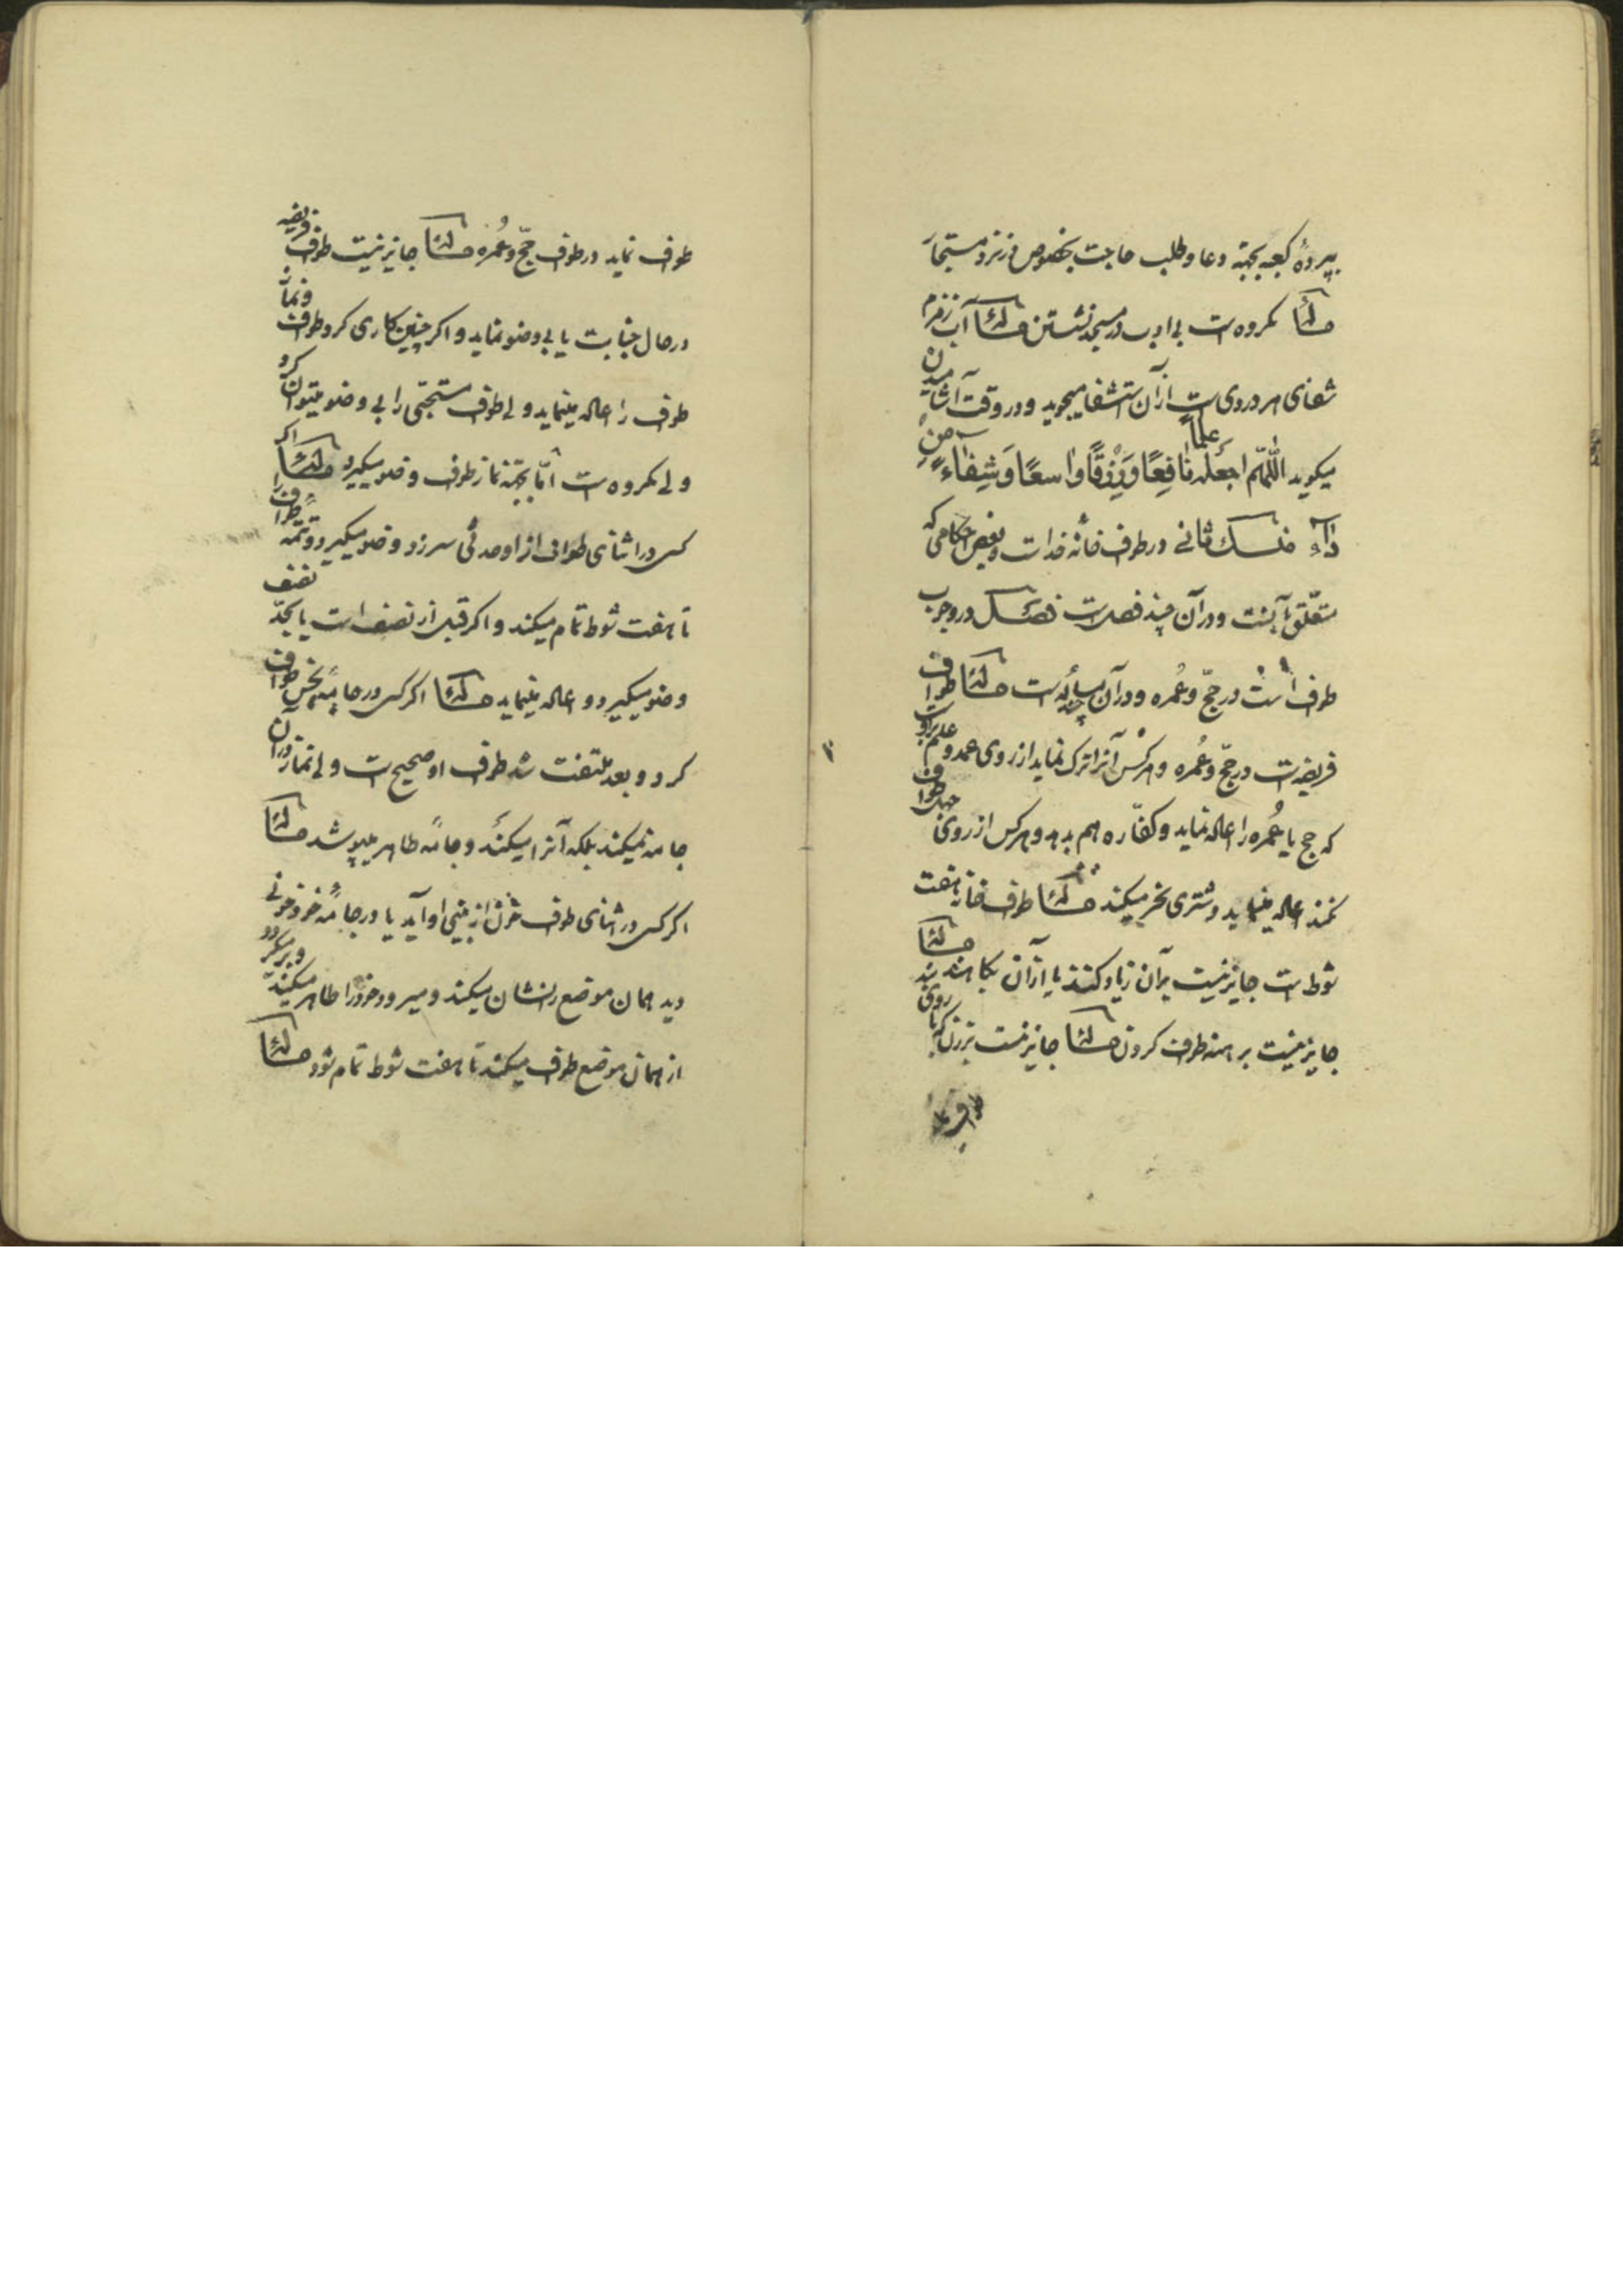 بپردهٔ کعبه بجهة دعا و طلب حاجت بخصوص در نزد مستجار
مسئلة مکروه است بی ادب در مسجد نشستن مسئلة آب زمزم
شفای هر دردی است از آن استشفا میجوید و در وقت آشامیدن
میکوید اللّهمّ اجعله علماً نافِعًا وَرِزقًا واسعًا وَشِفاءً مِن
داءٍ منسک ثانی در طواف خانهٔ خدا است و بعض احکامی که
متعلّق بآنست و در آن چند فصل است فصل در وجوب
طواف است در حجّ و عُمره و در آن چند مسأله است مسئلة طواف
فریضه است در حجّ و عُمره و هرکس آنرا ترک نماید از روی عمد و علم براوست
که حج یا عُمره را اعاله نماید و کفّاره هم بدهد و هرکس از روی جهل طواف
نکند اعاله مینماید و شتری نحر میکند مسئلة طواف خانه هفت
شوط است جایز نیست بر آن زیاد کنند یا از آن بکاهند مسئلة
جایز نیست برهنه طواف کردن مسئلة جایز نیست بر زن که با روی بند
طواف نماید در طواف حجّ و عُمره مسئلة جایز نیست طواف فریضه
در حال جنابت یا بی وضو نماید و اکر چنین کاری کرد طواف و نماز
طواف را اعاله مینماید ولی طواف مستحبّی را بی وضو میتوان کرد
ولی مکروه است امّا بجهة نماز طواف وضو میکیرد مسئلة اکر
کسی در اثنای طواف از او حدثی سرزد وضو میکیرد و تتمّه طواف را
تا هفت شوط تمام میکند و اکر قبل از نصف است یا بحدّ نصف
وضو میکیرد و اعاله مینماید مسئلة اکر کسی در جامهٔ نجس طواف
کرد و بعد ملتفت شد طواف او صحیح است ولی نماز در آن
جامه نمیکند بلکه آنرا میکند و جامهٔ طاهر میپوشد مسئلة
اکر کسی در اثنای طواف خون از بینی او آید یا در جامهٔ خود خونی
دید همان موضع را نشان میکند و میرود خود را طاهر میکند و برمیکردد
از همان موضع طواف میکند تا هفت شوط تمام شود مسئلة